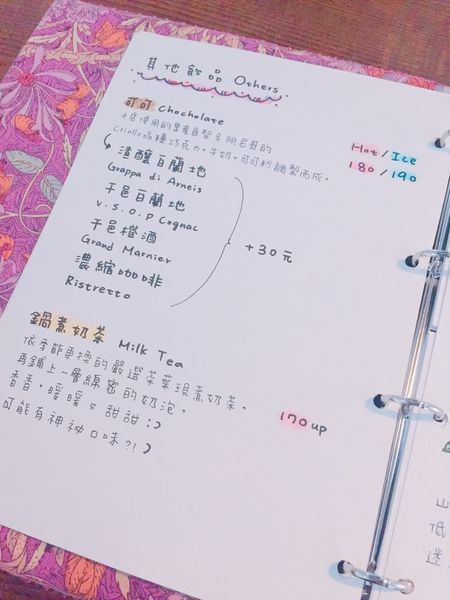 其他飲品 Others
可可 Chocholate
本店使用的是產自聖多明尼哥的
Hot/Ice
Criollo品種巧克力+牛奶+可可粉調製而成。
180/190
渣釀白蘭地
Grappa di Arneis
干邑白蘭地
V.S.O.P Cognac
干邑橙酒
+30元
Grand Marnier
濃縮咖啡
Ristretto
鍋煮奶茶 Milk Tea
依季節更換的嚴選茶葉現煮奶茶，
再鋪上一層綿密的奶泡，
香香，暖暖又甜甜:)
170up
可能有神祕口味?!)
山
低
迷